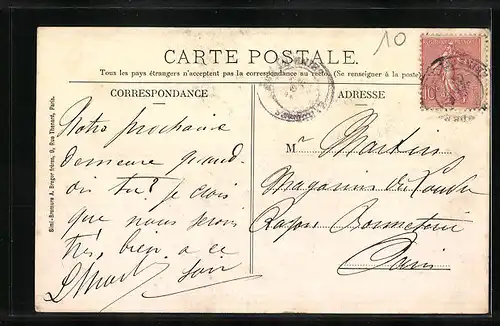 10
CARTE POSTALE.
Tous les pays étrangers n'acceptent pas la correspondance au recto. (Se renseigner à la poste)
CORRESPONDANCE
ADRESSE
Notre prochaine
demeure quand-
dis tu? je crois
que nous serons
très bien a ce
soir
Mr Martin
Magasins du Louvre
Rayon Bonneterie
Paris
Simi-Bromure A. Breger frères, 9, Rue Thénard, Paris.
10